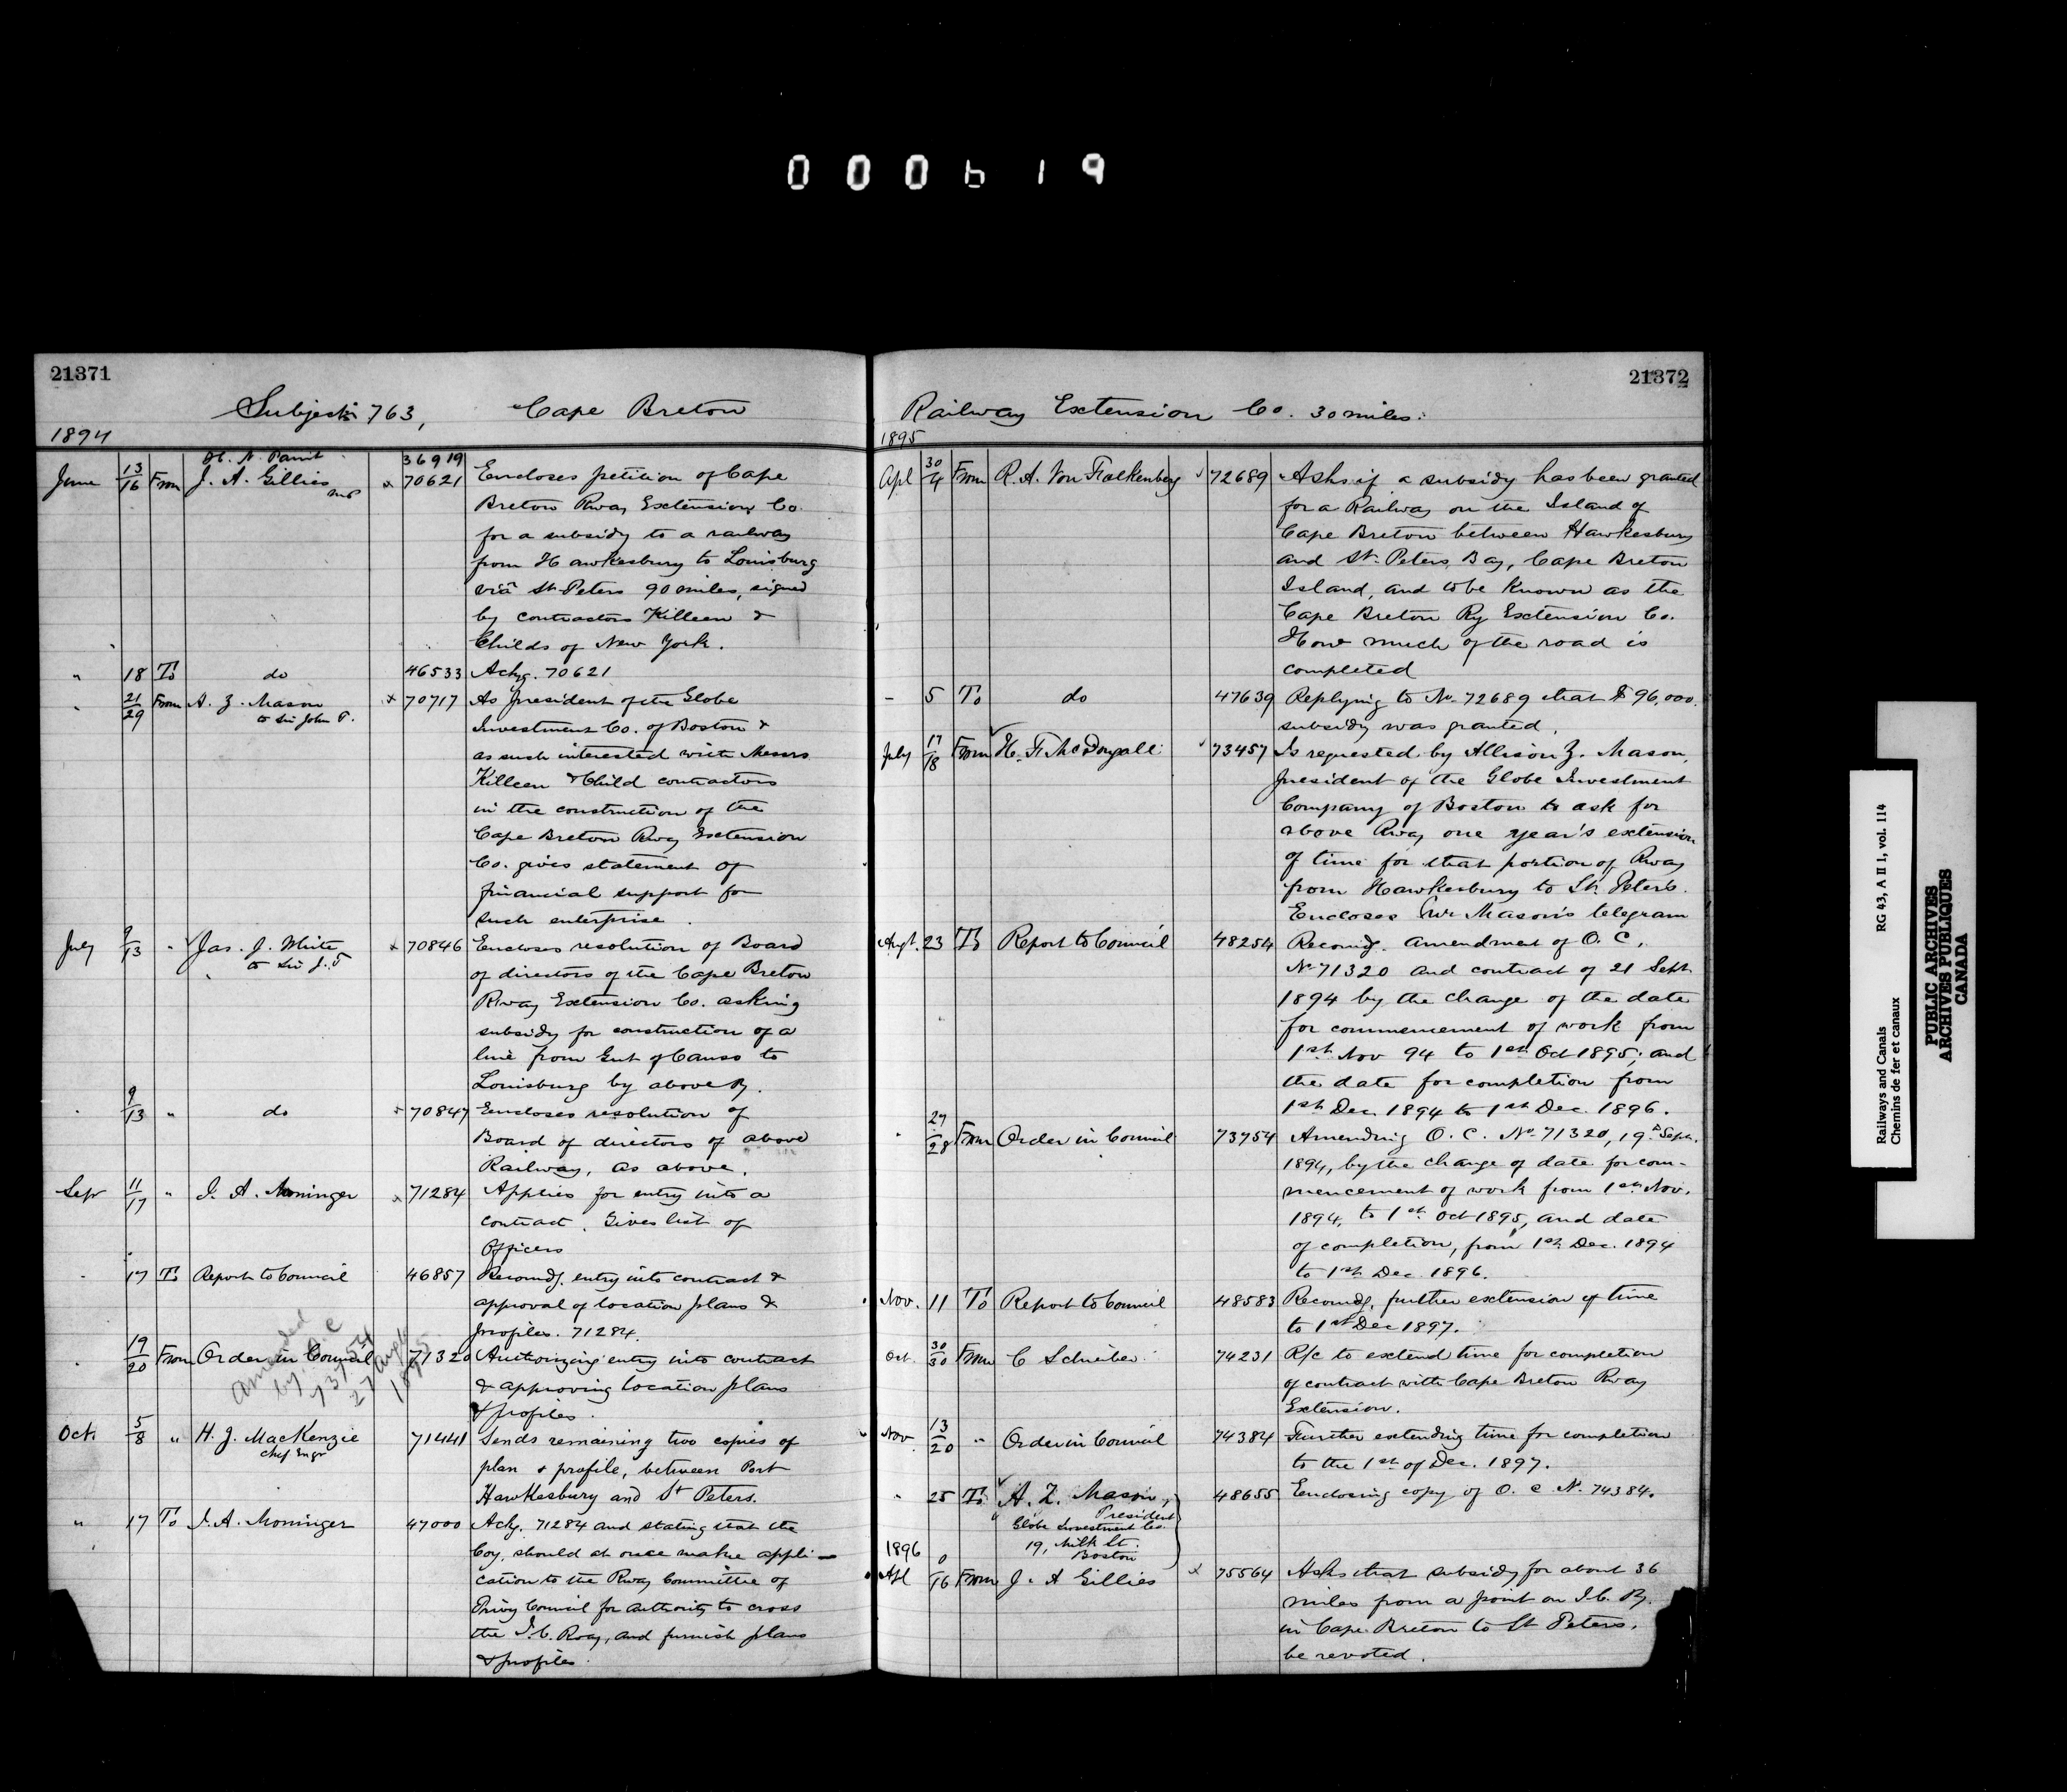 000619
21371
Subject 763, Cape Breton
1894
H. N. Parint 36919
June 13/16 From J. A. Gillies MP x 70621 Encloses petition of Cape
Breton Rway Extension Co.
for a subsidy to a railway
from Hawkesbury to Louisburg
viâ St. Peters 90 miles, signed
by contractors Killeen &
Childs of New York.
" 18 To do 46533 Ackg. 70621
" 21/29 From A. Z. Mason x 70717 As president of the Globe
to Sir John T.
Investment Co. of Boston &
as such interested with Messrs
Killeen & Child contractors
in the construction of the
Cape Breton Rway Extension
Co. gives statement of
financial support for
such enterprise.
July 9/13 " Jas. J. White x 70846 Encloses resolution of Board
to Sir J. T
of directors of the Cape Breton
Rway Extension Co. asking
subsidy for construction of a
line from Gut of Canso to
Louisburg by above Ry.
" 9/13 " do x 70847 Encloses resolution of
Board of directors of above
Railway, as above.
Sep 11/17 " I. A. Moninger x 71284 Applies for entry into a
contract. Gives list of
Officers
" 17 To Report to Council 46857 Recomdg. entry into contract &
approval of location plans &
profiles. 71284.
" 19/20 From Order in Council 71320 Authorizing entry into contract
amended
by O.C
73754
27 Augt
1895
& approving location plans
& profiles.
Oct. 5/8 " H. J. MacKenzie 71441 Sends remaining two copies of
Chief Engr
plan & profile, between Port
Hawkesbury and St Peters.
" 17 To I. A. Moninger 47000 Ackg. 71284 and stating that the
Coy. should at once make appli-
cation to the Rway Committee of
Privy Council for authority to cross
the I.C. Rway, and furnish plans
& profiles.
21372
Railway Extension Co. 30 miles.
1895
Apl 30/4 From R. A. Von Falkenberg 72689 Asks if a subsidy has been granted
for a Railway on the Island of
Cape Breton between Hawkesbury
and St. Peters Bay, Cape Breton
Island, and to be known as the
Cape Breton Ry Extension Co.
How much of the road is
completed
- 5 To do 47639 Replying to No. 72689 that $96,000.
subsidy was granted.
July 17/18 From H. F. McDougall 73457 Is requested by Allison Z. Mason,
president of the Globe Investment
Company of Boston to ask for
above Rway one year's extension
of time for that portion of Rway
from Hawkesbury to St. Peters.
Encloses Mr Mason's telegram
Augt. 23 To Report to Council 48254 Recomdg. amendment of O. C.
No 71320 and contract of 21 Sept.
1894 by the change of the date
for commencement of work from
1st Nov 94 to 1st Oct 1895; and
the date for completion from
1st Dec. 1894 to 1st Dec. 1896.
" 27/28 From Order in Council 73754 Amending O. C. No. 71320, 19th Sept.
1894, by the change of date for com-
mencement of work from 1st Nov.
1894, to 1st Oct 1895, and date
of completion, from 1st Dec. 1894
to 1st Dec. 1896.
Nov. 11 To Report to Council 48583 Recomdg. further extension of time
to 1st Dec 1897.
Oct. 30/30 From C Schreiber 74231 R/c to extend time for completion
of contract with Cape Breton Rway
Extension.
Nov 13/20 " Order in Council 74384 Further extending time for completion
to the 1st of Dec. 1897.
" 25 To A. Z. Mason, 48655 Enclosing copy of O. C No. 74384.
President
Globe Investment Co.
19, Milk St.
Boston
1896
Apl /16 From J. A Gillies x 75564 Asks that subsidy for about 36
miles from a point on I.C. Ry.
in Cape Breton to St Peters.
be revoted.
Railways and Canals RG 43, A II 1, vol. 114
Chemins de fer et canaux
PUBLIC ARCHIVES
ARCHIVES PUBLIQUES
CANADA